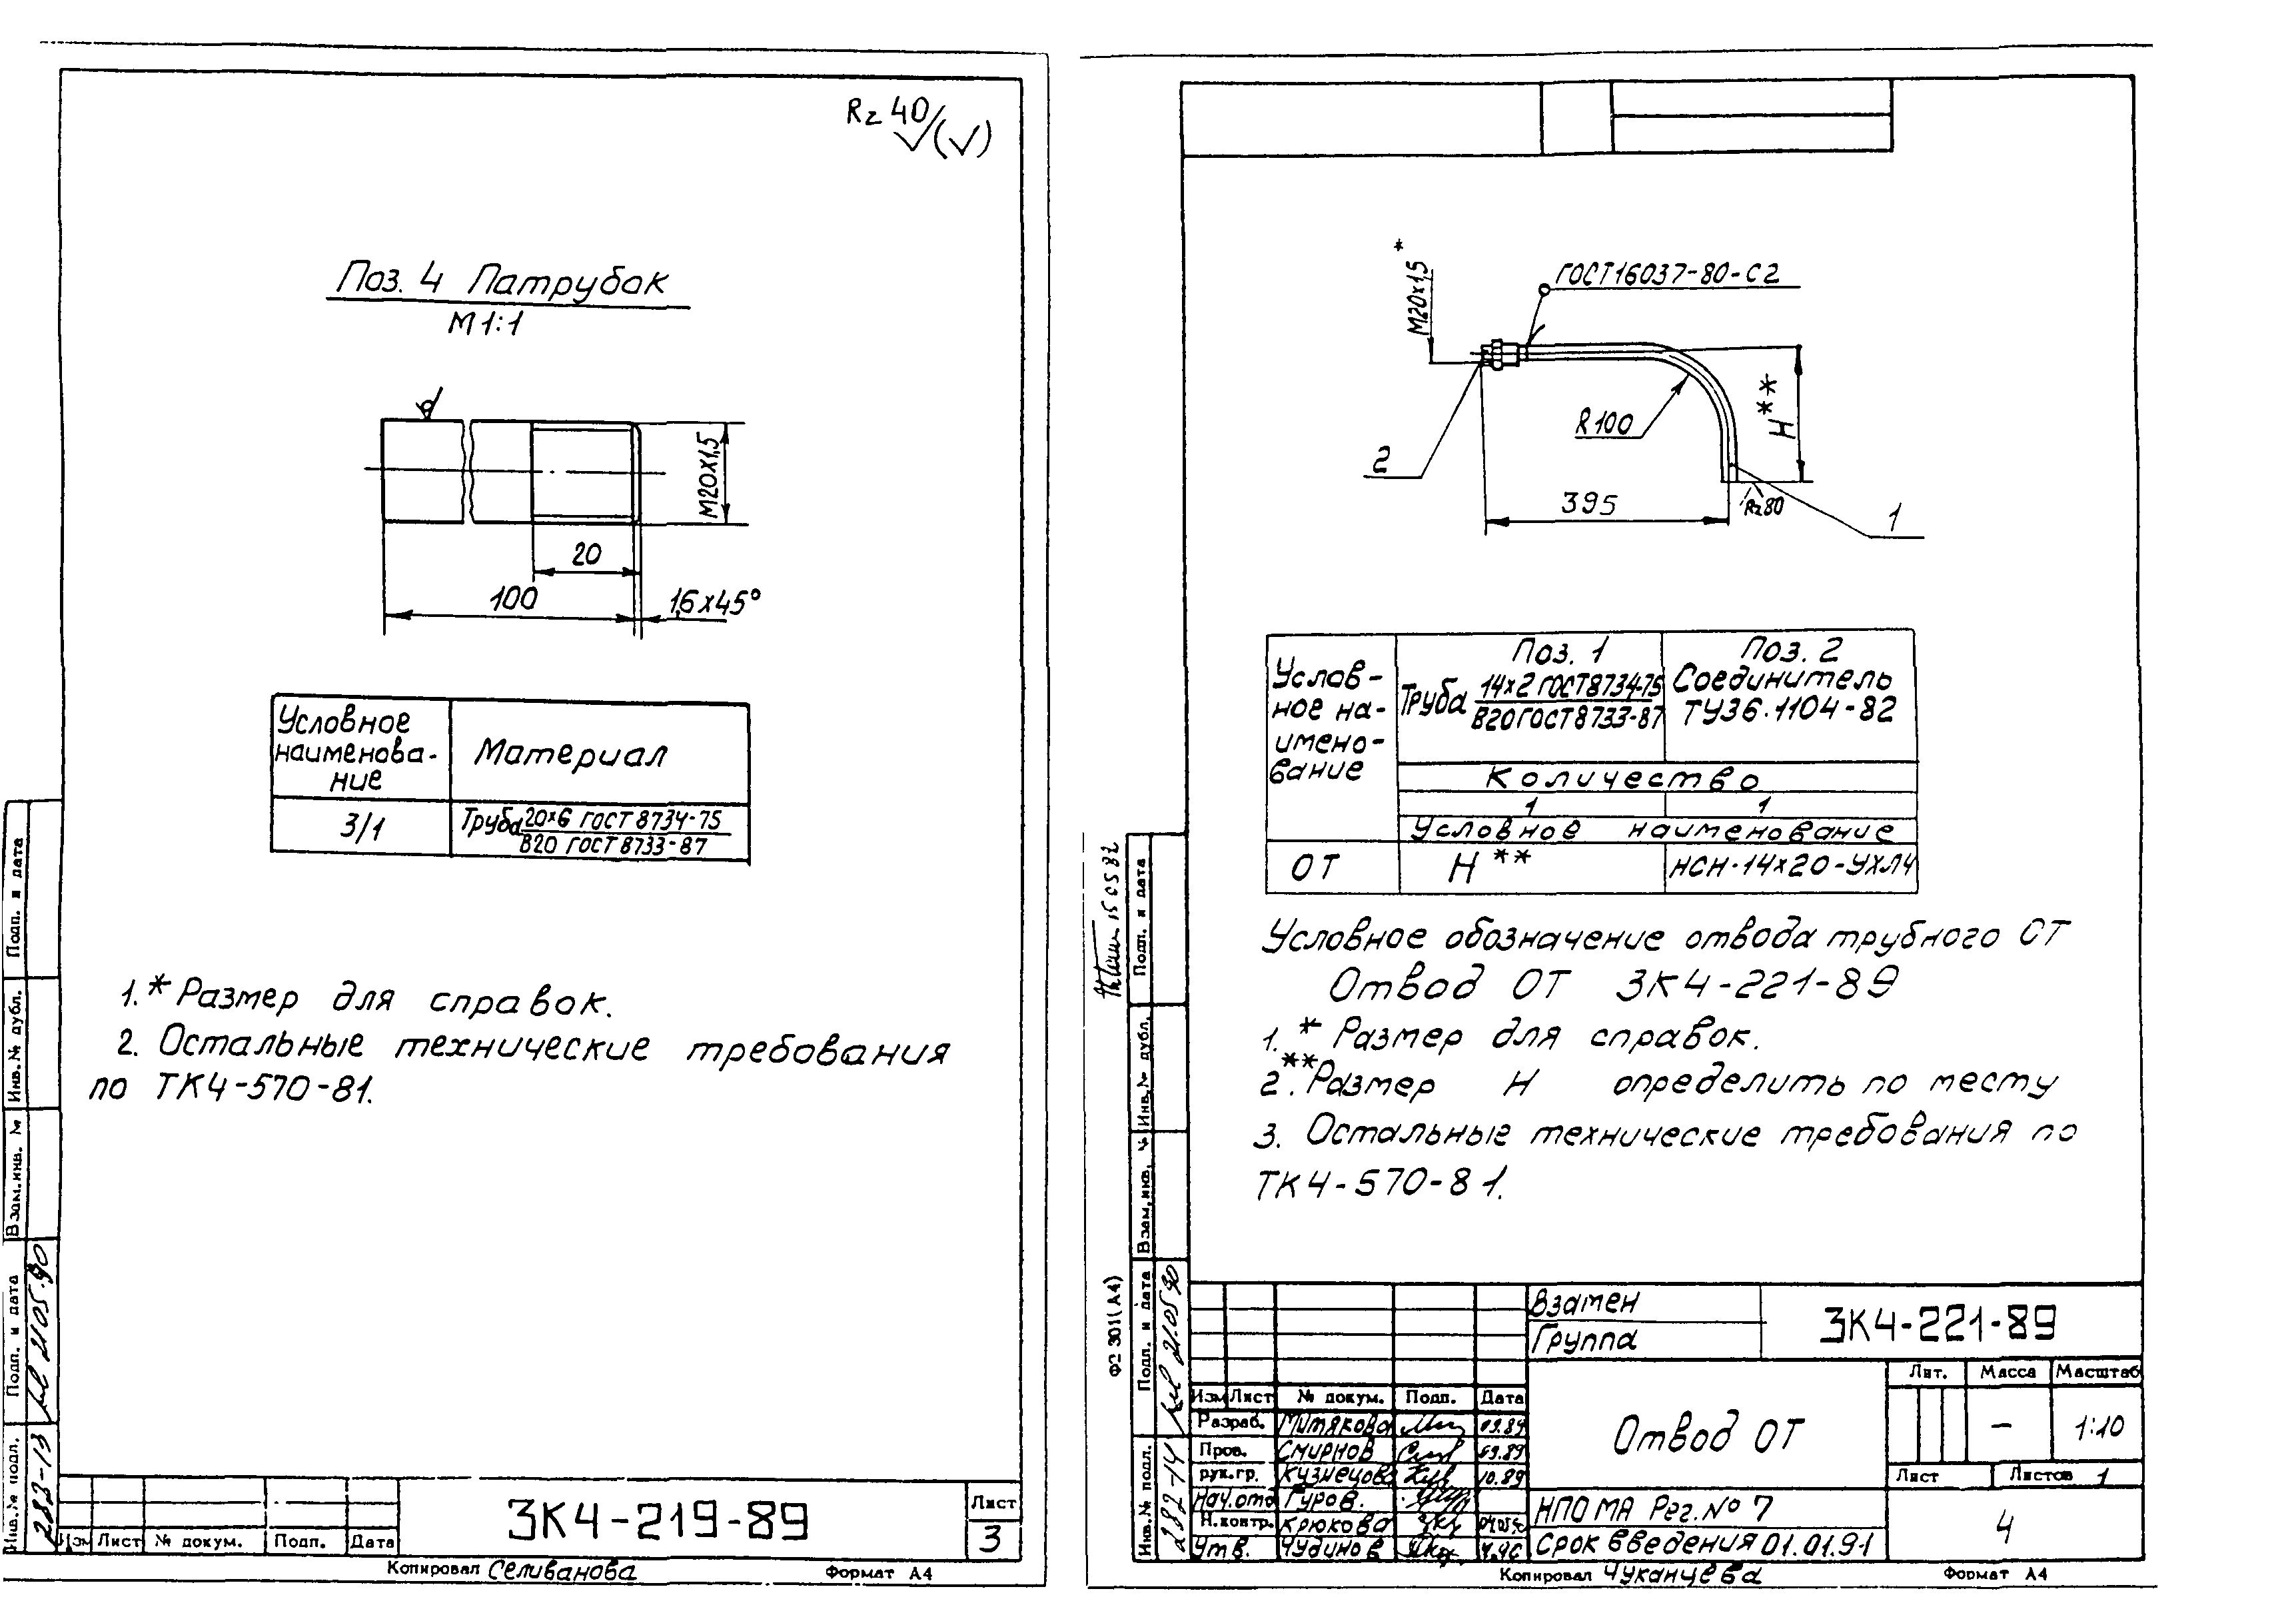 Rz 40 (√)
Поз. 4 Патрубок
М 1:1
М20х1,5
20
100
1,6х45°
Условное наименова-ние
Материал
3/1
Труба 20х6 ГОСТ 8734-75
В20 ГОСТ 8733-87
1.* Размер для справок.
2. Остальные технические требования
по ТК4-570-81.
Подп. и дата
Инв.№ дубл.
Взам.инв. №
Подп. и дата
21.05.90
Инв.№ подл.
282-13
Изм Лист № докум. Подп. Дата
ЗК4-219-89
Лист
3
Копировал Селиванова Формат А4
М20х1,5*
ГОСТ16037-80-С2
R100
H**
2
395
Rz80
1
Услов-
ное на-
имено-
вание
Поз. 1
Труба 14х2 ГОСТ8734-75
В20 ГОСТ8733-87
Поз. 2
Соединитель
ТУ36.1104-82
Количество
1 1
Условное наименование
ОТ Н** НСН-14х20-УХЛ4
Условное обозначение отвода трубного ОТ
Отвод ОТ ЗК4-221-89
1.* Размер для справок.
2.** Размер Н определить по месту
3. Остальные технические требования по
ТК4-570-81.
Подп. и дата
Инв.№ дубл.
Взам.инв. №
Подп. и дата
21.05.90
Инв.№ подл.
282-14
Ф2 301(А4)
Взамен
Группа
ЗК4-221-89
Изм Лист № докум. Подп. Дата
Разраб. Митякова 09.89
Пров. Смирнов 09.89
рук.гр. Кузнецова 10.89
Нач.отд Гуров.
Н.контр. Крюкова
Утв. Чудинов
Отвод ОТ
Лит. Масса Масштаб
— 1:10
Лист Листов 1
НПО МА Рег. № 7
Срок введения 01.01.91
4
Копировал Чуканцева Формат А4